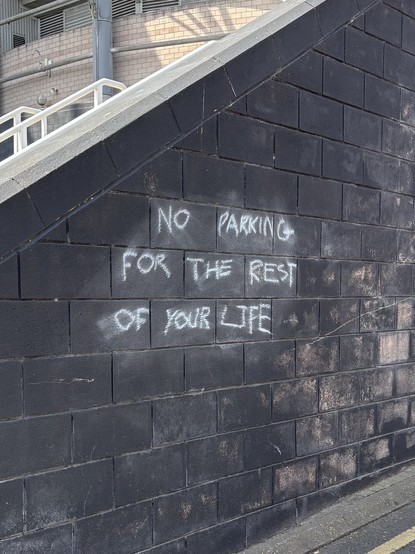 NO PARKING
FOR THE REST
OF YOUR LIFE